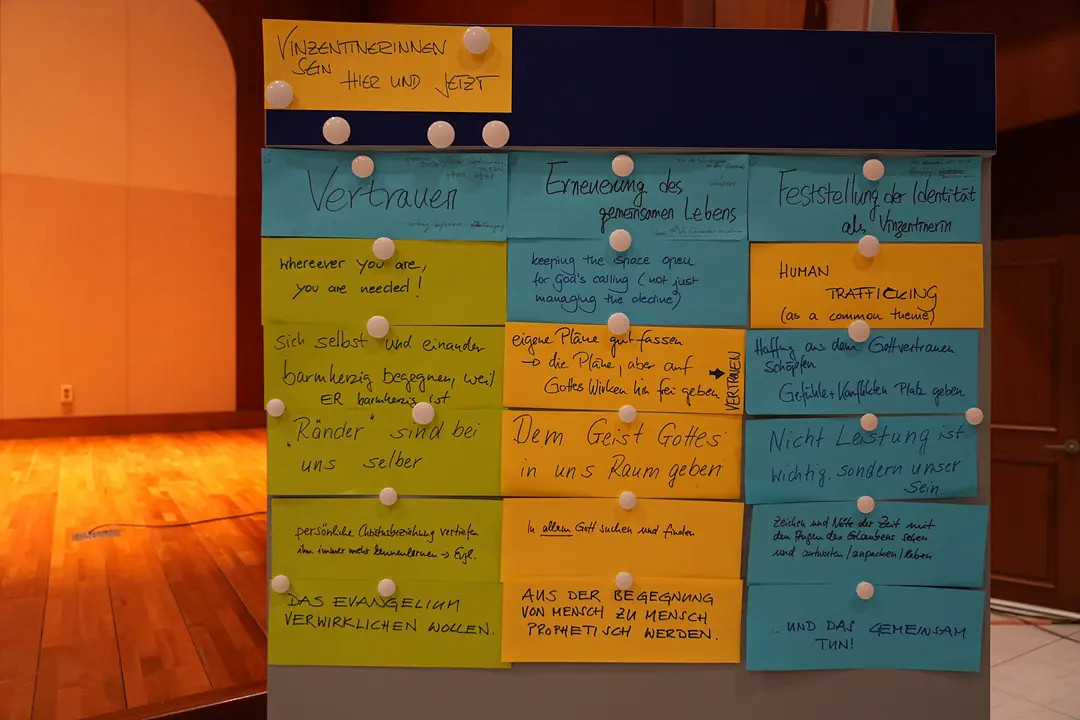 VINZENTINERINNEN
SEIN
HIER UND JETZT
Vertrauen
whereever you are,
you are needed!
sich selbst und einander
barmherzig begegnen, weil
ER barmherzig ist
"Ränder" sind bei
uns selber
persönliche Christusbeziehung vertiefen
ihn immer mehr kennenlernen → Evgl.
DAS EVANGELIUM
VERWIRKLICHEN WOLLEN.
Erneuerung des
gemeinsamen Lebens
keeping the space open
for God's calling (not just
managing the decline)
eigene Pläne gut fassen
→ die Pläne, aber auf
Gottes Wirken hin frei geben
→ VERTRAUEN
Dem Geist Gottes
in uns Raum geben
In allem Gott suchen und finden
AUS DER BEGEGNUNG
VON MENSCH ZU MENSCH
PROPHETISCH WERDEN.
Feststellung der Identität
als Vinzentinerin
HUMAN
TRAFFICKING
(as a common theme)
Hoffnung aus dem Gottvertrauen
schöpfen
Gefühle + Konflikten Platz geben
Nicht Leistung ist
wichtig, sondern unser
Sein
Zeichen und Nöte der Zeit mit
den Augen des Glaubens sehen
und antworten/anpacken/leben
..UND DAS GEMEINSAM
TUN!